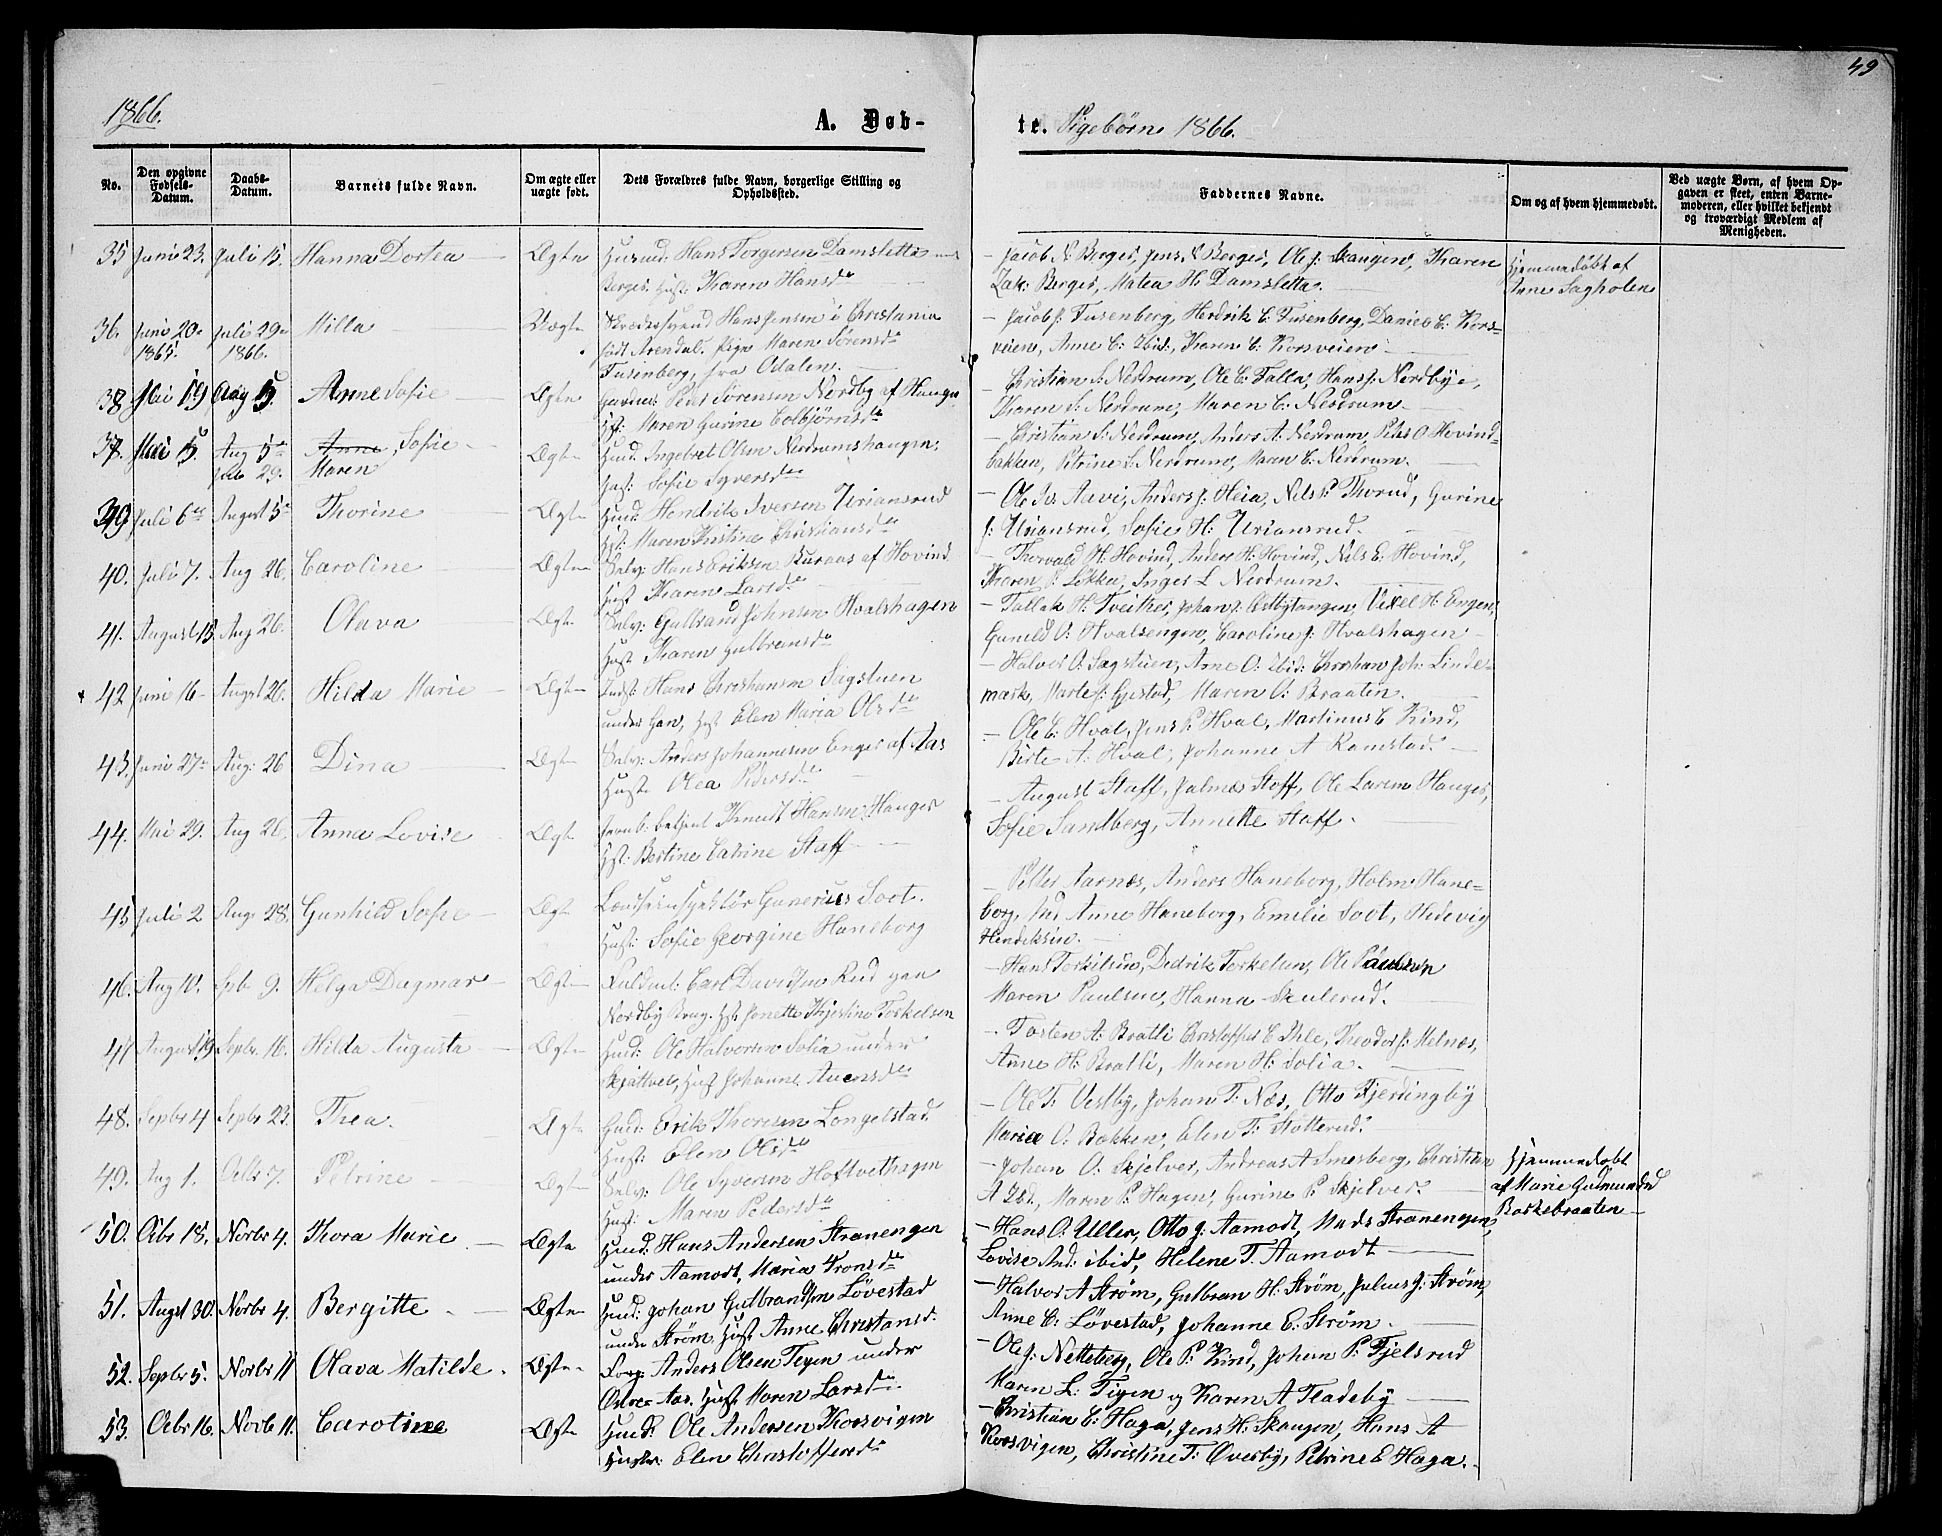 49
1866.
A. Døb-
te. Pigebørn 1866.
No.
Den opgivne Fødsels-Datum.
Daabs-Datum.
Barnets fulde Navn.
Om ægte eller uægte født.
Dets Forældres fulde Navn, borgerlige Stilling og Opholdssted.
Faddernes Navne.
Om og af hvem hjemmedøbt.
Ved uægte Børn, af hvem Opgaven er skeet, enten Barnemoderen, eller hvilket bekjendt og troværdigt Medlem af Menigheden.
35 Juni 23. Juli 15. Hanna Dortea Ægte Husmd: Hans Torgersen Damsletta
Berger Hust: Karen Hansdr
Jacob N Berger, Jens N Berger, Ole J: Skaugen, Karen
Zak: Berger, Matea H: Damsletta.
Hjemmedøbt af
Anne Sagholen
36. Juni 20. 1865. Juli 29. 1866. Milla Uægte Skredersvend Hans Jensen i Christiania
født Arendal. Pige Maren Sørensdr
Tusenberg, fra Odalen.
Jacob J: Tusenberg, Hendrik C: Tusenberg, Daniel C: Kors-
veien, Anne C: Ibid:, Karen C: Korsveien
38 Mai 19 Aug 5. Anne Sofie Ægte Peder Sørensen Nordby af Hauger
Hst: Maren Gurine Colbjørnsdr
Christian S: Nerdrum, Ole C: Falla, Hans J: Nordbye,
Karen S: Nerdrum, Maren C: Nerdrum
37. Mai 15. Aug 5 29. Anne, Sofie
Maren Ægte Husmd. Ingebret Olsen Nerdrumshaugen;
Hust: Sofie Syversdr
Christian S: Nerdrum, Anders A: Nerdrum, Peter O Hovind-
bakken, Petrine S: Nerdrum, Maren C: Nerdrum.
39 Juli 6 August 5 Thorine Ægte Husmd: Hendrik Iversen Uriansrud
Hst: Maren Kristine Christiansdr
Ole Iv: Aavi, Anders J: Heia, Nils P: Thorud, Gurine
J: Uriansrud, Sofie H: Uriansrud.
40. Juli 7. Aug 26. Caroline Ægte Selv: Hans Eriksen Kuraas af Hovind
Hust Karen Larsdr
Thorvald H: Hovind, Anders H: Hovind, Nils E: Hovind,
Karen P: Løkka, Inger L Nerdrum.
41. August 13 Aug 26. Olava Ægte Selv: Gulbrand Johnsen Hvalshagen
Hust Karen Gulbransdr
Tallak H: Tveither, Johan J: Østbytangen, Vixel H: Engen,
Gunild O: Hvalsengen, Caroline J: Hvalshagen
42 Juni 16 August 26. Hilda Marie Ægte Indst: Hans Christiansen Sagstuen
under Gan, Hst Elen Maria Olsdr
Halvor O: Sagstuen, Arne O: ibid: Christian Joh: Linde-
mark, Marte J: Gjestad, Maren O: Braaten.
43. Juni 27 Aug: 26 Dina Ægte Selv: Anders Johannesen Enger af Aas
Hust: Olea Pedersdr
Ole C: Hval, Jens P: Hval, Martinus C Kind,
Birte A: Hval, Johanne A Ramstad.
44. Mai 29. Aug 26. Anna Lovise Ægte Jernb: betjent Knud Hansen Hauger
Hst: Bertine Catrine Staff
August Staff, Palmæs Staff, Ole Larsen Hauger,
Sofie Sandberg, Annette Staff.
45 Juli 2 Aug 28. Gunhild Sofie Ægte Lendseinspektør Gunerius Soot.
Hust: Sofie Georgine Haneborg
Petter Aarnæs, Anders Haneborg, Holm Hane-
borg, Anne Haneborg, Emilie Soot, Hedevig
Hendriksen.
46. Aug 10. Spbr 9. Helga Dagmar Ægte Fuldm: Carl Davidsen Rud gaa
Nordby Brug. Hst: Jonette Kjerstine Torkelsen
Hans Torkelsen, Dedrik Torkelsen, Ole Paulsen
Maren Paulsen, Hanna Skulerud.
47 August 19 Sepbr. 16. Hilda Augusta Ægte Husmd: Ole Halvorsen Solia under
Skjatvet, Hust Johanne Auensdr
Torsten A: Bratli Christoffer C Ihle, Theodor J: Melnæs,
Anne H: Bratli, Maren H: Solia.
48. Sepbr 4 Sepbr 23. Thea. Ægte Husmd: Erik Thoresen Longelstad
Hust: Elen Olsdr
Ole T: Vestby, Johan T: Næs, Otto Fjerdingby
Maria O: Bakken, Elen T: Slotterud.
49. Aug 1. Octbr 7. Petrine Ægte Selv: Ole Syversen Hoftvethagen
Hust: Maren Pedersdr
Johan O: Skjelver, Andreas A Smesberg, Christian
A Ibd, Maren P: Hagen, Gurine P: Skjelver.
Hjemmedøbt
af Marie Gulmundsd
Borkebraaten
50. Ocbr 18. Novbr 4. Thora Marie Ægte Husmd: Hans Andersen Stranengen
under Aamodt, Maria Tronsdr
Hans O: Uller, Otto J: Aamodt, Mads Stranengen,
Lovise And: ibid, Helene T. Aamodt
51. Augst 30. Novbr 4. Bergitte Ægte Husmd: Johan Gulbrandsen Løvestad
under Strøm Hust Anne Christiansd:
Halvor A Strøm, Gulbran H: Strøm, Julius J: Strøm,
Anne C: Løvestad, Johanne E: Strøm.
52. Sepbr 5. Novbr 11 Olava Matilde. Ægte Forp: Anders Olsen Tegen under
Østre Aas, Hust Maren Larsdr
Ole J: Netteberg, Ole P: Kind, Johan P: Fjelsrud
Maren L: Tigen og Karen A Fladeby
53. Ocbr 16. Novb 11. Caroline Ægte Husmd: Ole Andersen Korsvigen
Hustr: Elen Christoffersdr
Christian C: Haga, Jens H: Skaugen, Hans A
Korsvigen, Christine T: Overby, Petrine E Haga.